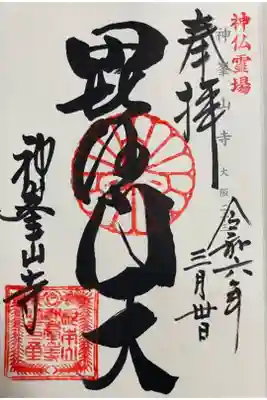 神仏霊場
奉拝
神峯山寺 大阪
令和六年
三月廿日
毘沙門天
神峯山寺